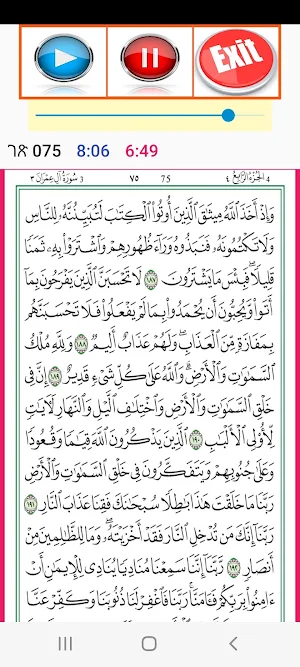 Exit
ገጽ 075 8:06 6:49
3 سُورَةُ آلِ عِمۡرَان ٣ ٧٥ 75 الجُزۡءُ الرَّابِعُ ٤ 4
وَإِذۡ أَخَذَ ٱللَّهُ مِيثَٰقَ ٱلَّذِينَ أُوتُواْ ٱلۡكِتَٰبَ لَتُبَيِّنُنَّهُۥ لِلنَّاسِ
وَلَا تَكۡتُمُونَهُۥ فَنَبَذُوهُ وَرَآءَ ظُهُورِهِمۡ وَٱشۡتَرَوۡاْ بِهِۦ ثَمَنٗا
قَلِيلٗاۖ فَبِئۡسَ مَا يَشۡتَرُونَ ١٨٧ لَا تَحۡسَبَنَّ ٱلَّذِينَ يَفۡرَحُونَ بِمَآ
أَتَواْ وَّيُحِبُّونَ أَن يُحۡمَدُواْ بِمَا لَمۡ يَفۡعَلُواْ فَلَا تَحۡسَبَنَّهُم
بِمَفَازَةٖ مِّنَ ٱلۡعَذَابِۖ وَلَهُمۡ عَذَابٌ أَلِيمٞ ١٨٨ وَلِلَّهِ مُلۡكُ
ٱلسَّمَٰوَٰتِ وَٱلۡأَرۡضِۗ وَٱللَّهُ عَلَىٰ كُلِّ شَيۡءٖ قَدِيرٌ ١٨٩ إِنَّ فِي
خَلۡقِ ٱلسَّمَٰوَٰتِ وَٱلۡأَرۡضِ وَٱخۡتِلَٰفِ ٱلَّيۡلِ وَٱلنَّهَارِ لَأٓيَٰتٖ
لِّأُوْلِي ٱلۡأَلۡبَٰبِ ١٩٠ ٱلَّذِينَ يَذۡكُرُونَ ٱللَّهَ قِيَٰمٗا وَقُعُودٗا
وَعَلَىٰ جُنُوبِهِمۡ وَيَتَفَكَّرُونَ فِي خَلۡقِ ٱلسَّمَٰوَٰتِ وَٱلۡأَرۡضِ
رَبَّنَا مَا خَلَقۡتَ هَٰذَا بَٰطِلٗا سُبۡحَٰنَكَ فَقِنَا عَذَابَ ٱلنَّارِ ١٩١
رَبَّنَآ إِنَّكَ مَن تُدۡخِلِ ٱلنَّارَ فَقَدۡ أَخۡزَيۡتَهُۥۖ وَمَا لِلظَّٰلِمِينَ مِنۡ
أَنصَارٖ ١٩٢ رَّبَّنَآ إِنَّنَا سَمِعۡنَا مُنَادِيٗا يُنَادِي لِلۡإِيمَٰنِ أَنۡ
ءَامِنُواْ بِرَبِّكُمۡ فَـَٔامَنَّاۚ رَبَّنَا فَٱغۡفِرۡ لَنَا ذُنُوبَنَا وَكَفِّرۡ عَنَّا